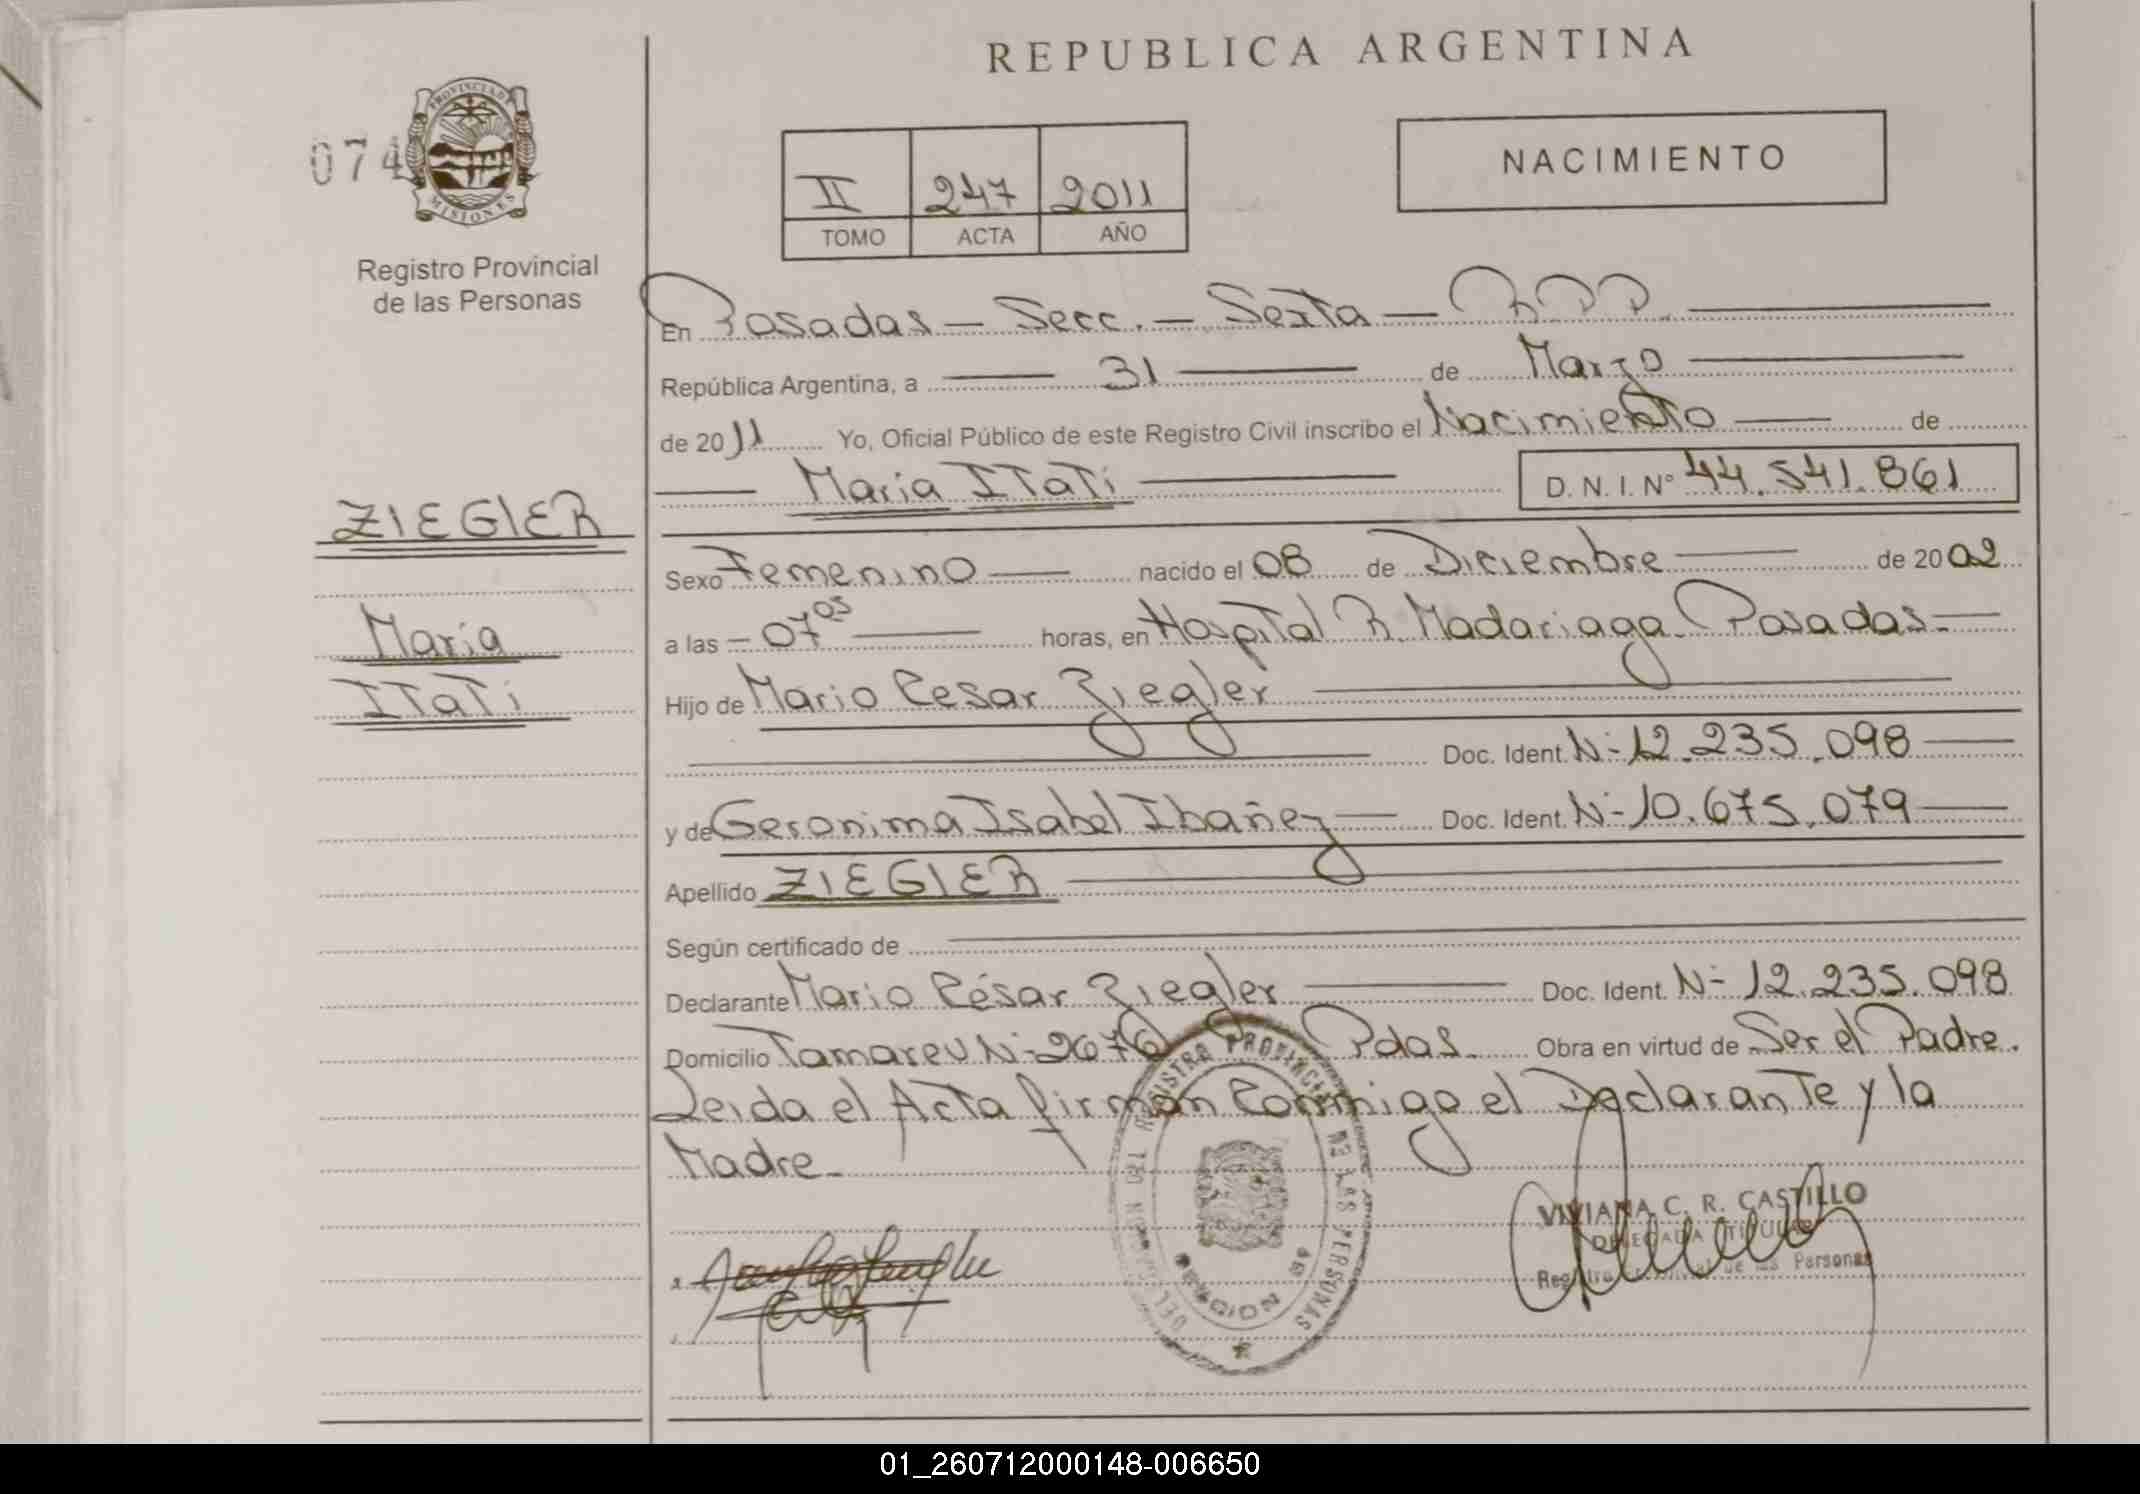 REPUBLICA ARGENTINA
074
PROVINCIA DE
MISIONES
Registro Provincial
de las Personas
II 247 2011
TOMO ACTA AÑO
NACIMIENTO
En Posadas – Secc. – Sexta – R P P.
República Argentina, a 31 de Marzo
de 2011 Yo, Oficial Público de este Registro Civil inscribo el Nacimiento de
Maria Itatí D. N. I. Nº 44.541.861
ZIEGLER
Sexo Femenino nacido el 08 de Diciembre de 2002
María
a las – 07 05 horas, en Hospital R. Madariaga. Posadas.
Itatí
Hijo de Mario Cesar Ziegler
Doc. Ident. N- 12.235.098
y de Geronima Isabel Ibañez Doc. Ident. N- 10.675.079
Apellido ZIEGLER
Según certificado de
Declarante Mario César Ziegler Doc. Ident. N- 12.235.098
Domicilio N- 2676 Pdas. Obra en virtud de Ser el Padre.
Leida el Acta firman Conmigo el Declarante y la
Madre.
REGISTRO PROVINCIAL DE LAS PERSONAS
VIVIANA C. R. CASTILLO
DELEGADA TITULAR
Registro Provincial de las Personas
01_260712000148-006650